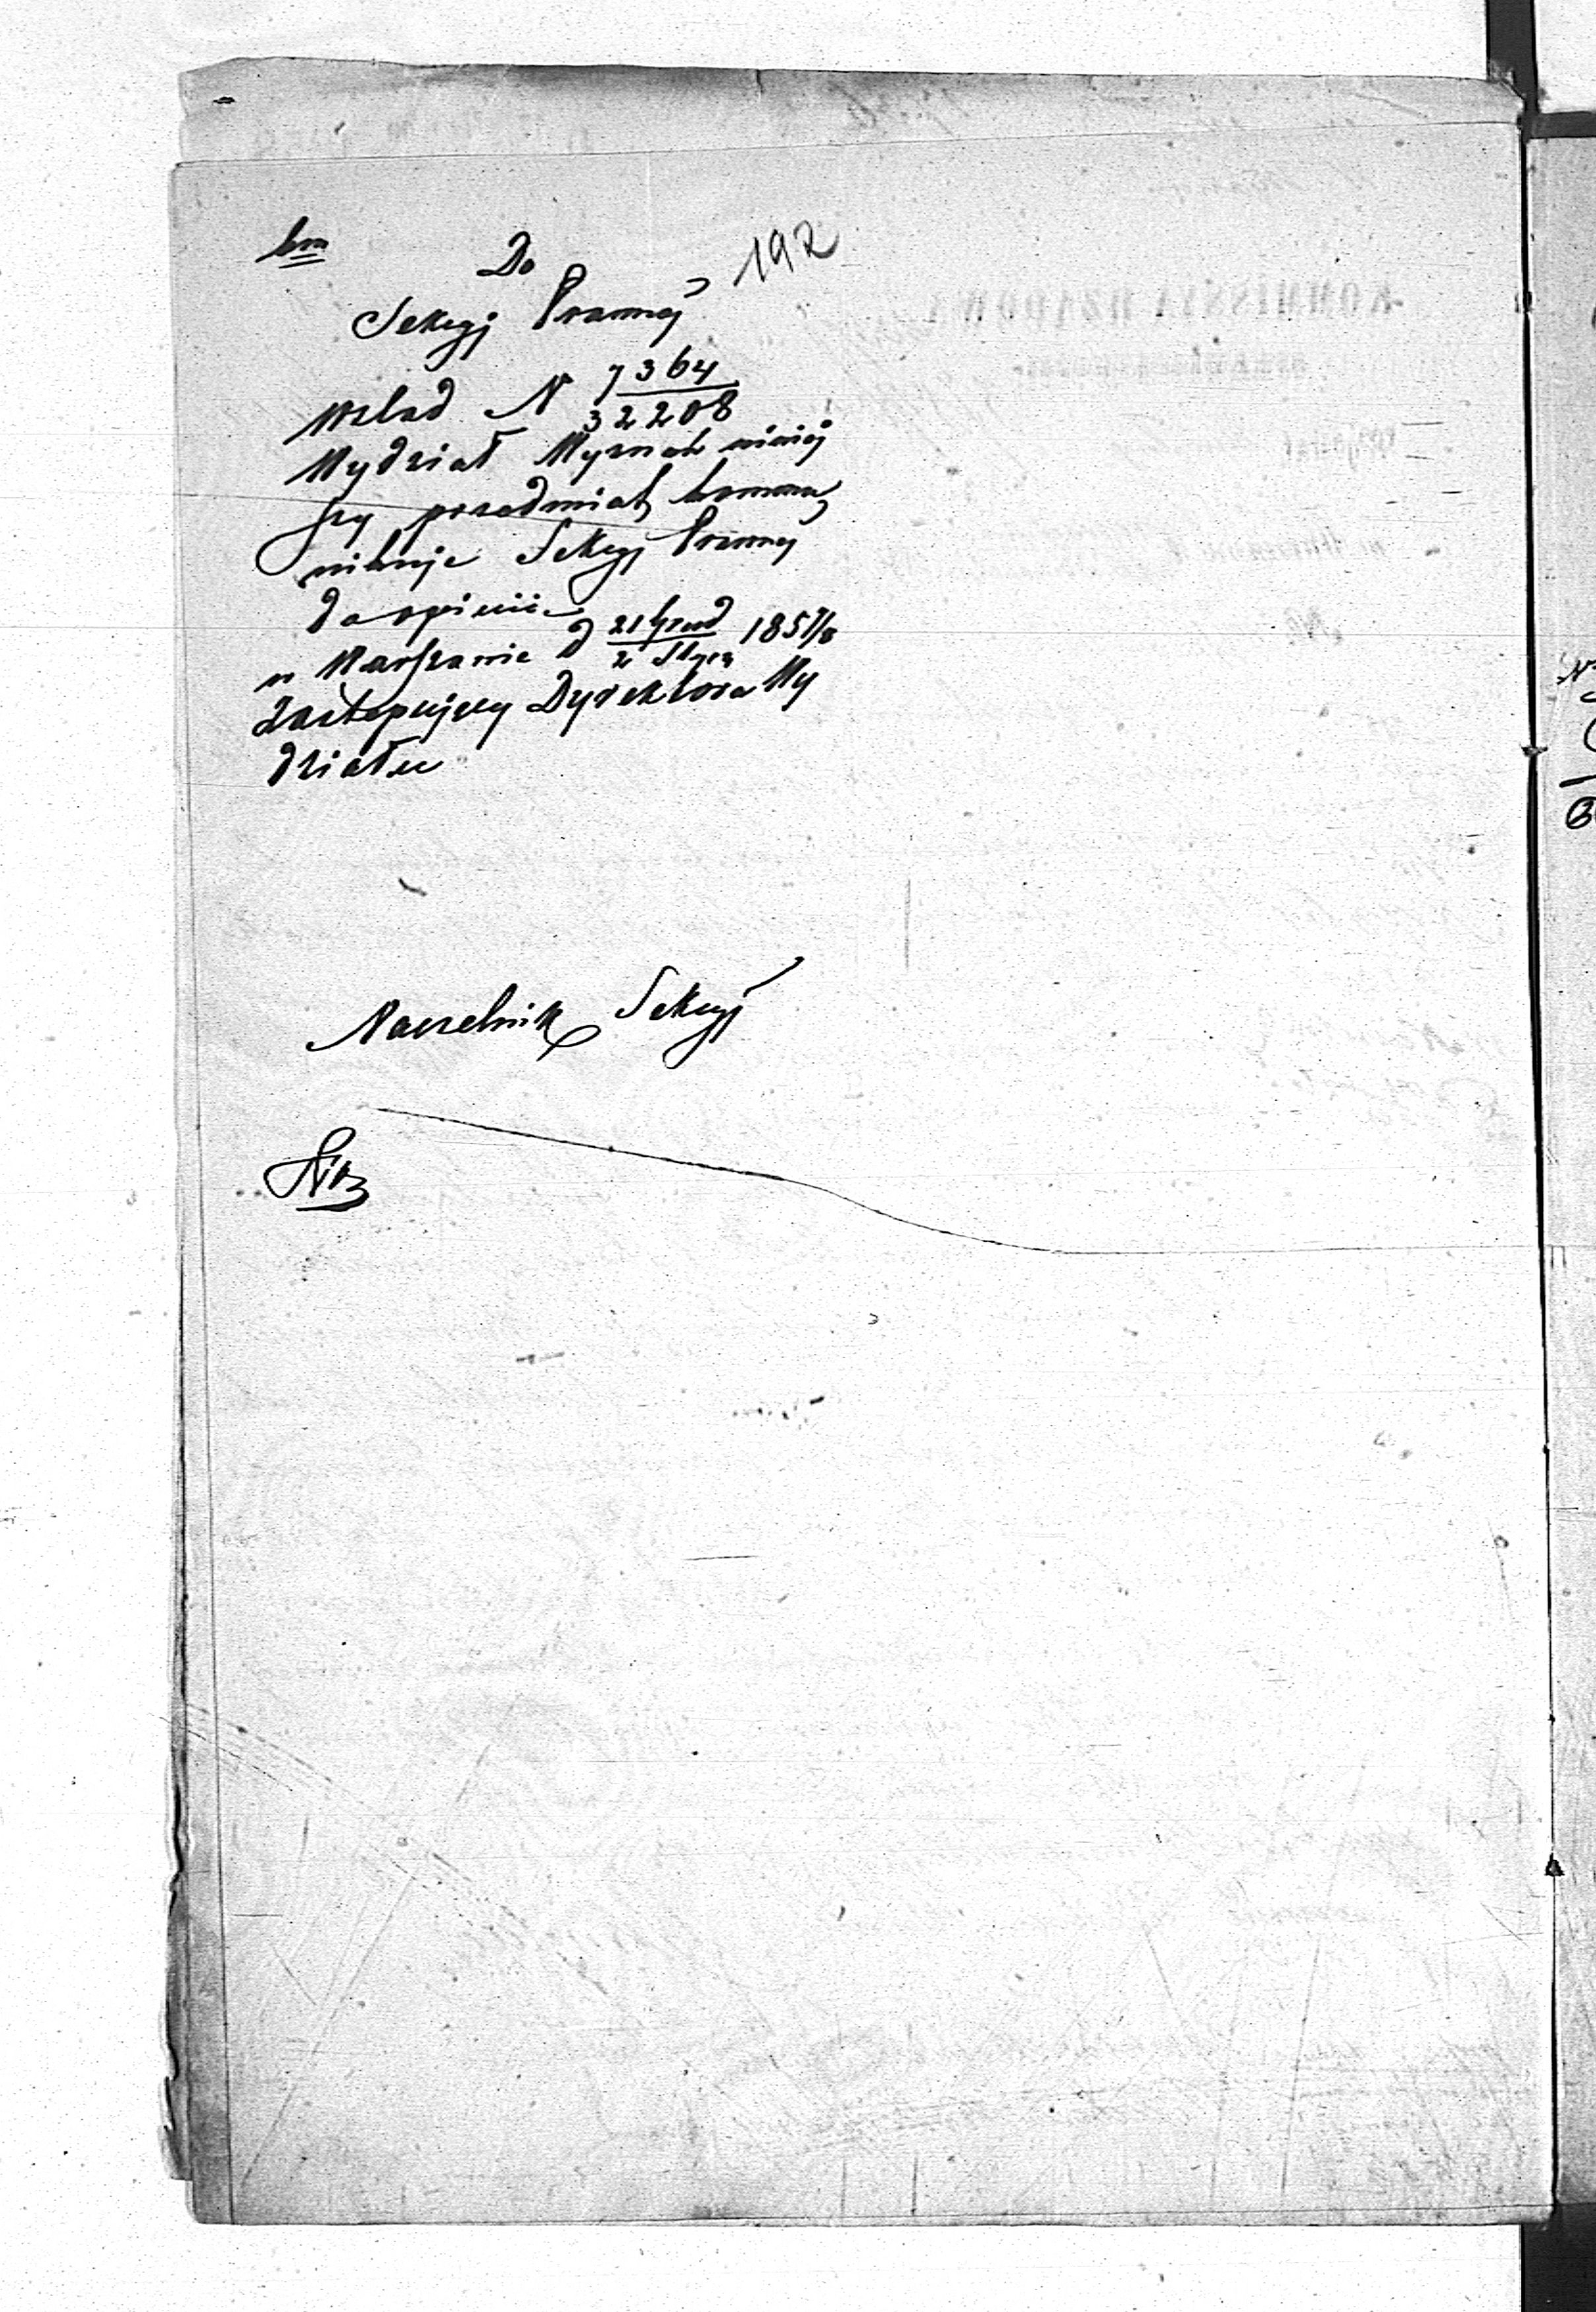 192
Do
Sekcyj Prawnej
wslad N 7364/32208
Wydział Wyznań niniej
szy przedmiot kommu
nikuje Sekcyj Prawnej
do opinii
w Warszawie d 21 Grud/2 Stycz 1857/8
Zastępujący Dyrektora Wy
działu
Naczelnik Sekcyj